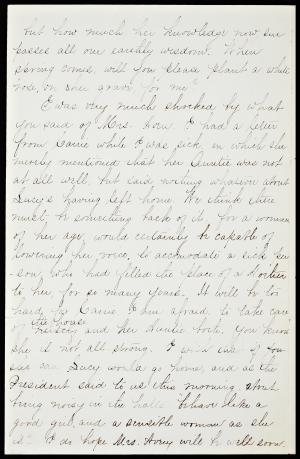 but how much her knowledge now sur
passes all our earthly wisdom. When
spring comes, will you please plant a white
rose, on our grave for me.
I was very much shocked by what
you said of Mrs. Avery. I had a letter
from Carrie while I was sick, in which she
merely mentioned that her Auntie was not
at all well, but said nothing whatever about
Lucy's having left home. We think there
must be something back of it, for a woman
of her age, would certainly be capable of
lowering her voice, to accomodate a sick per
son, who had filled the place of a Mother
to her, for so many years. It will be to
hard, for Carrie, I am afraid, to take care
of the house and her Auntie both. You know
she is not, all strong. I wish if you
see Lucy would go home, and as the
President said to us this morning, about
being noisy in the halls "behave like a
good girl, and a sensible woman as she
is." I do hope Mrs. Avery will be well soon.